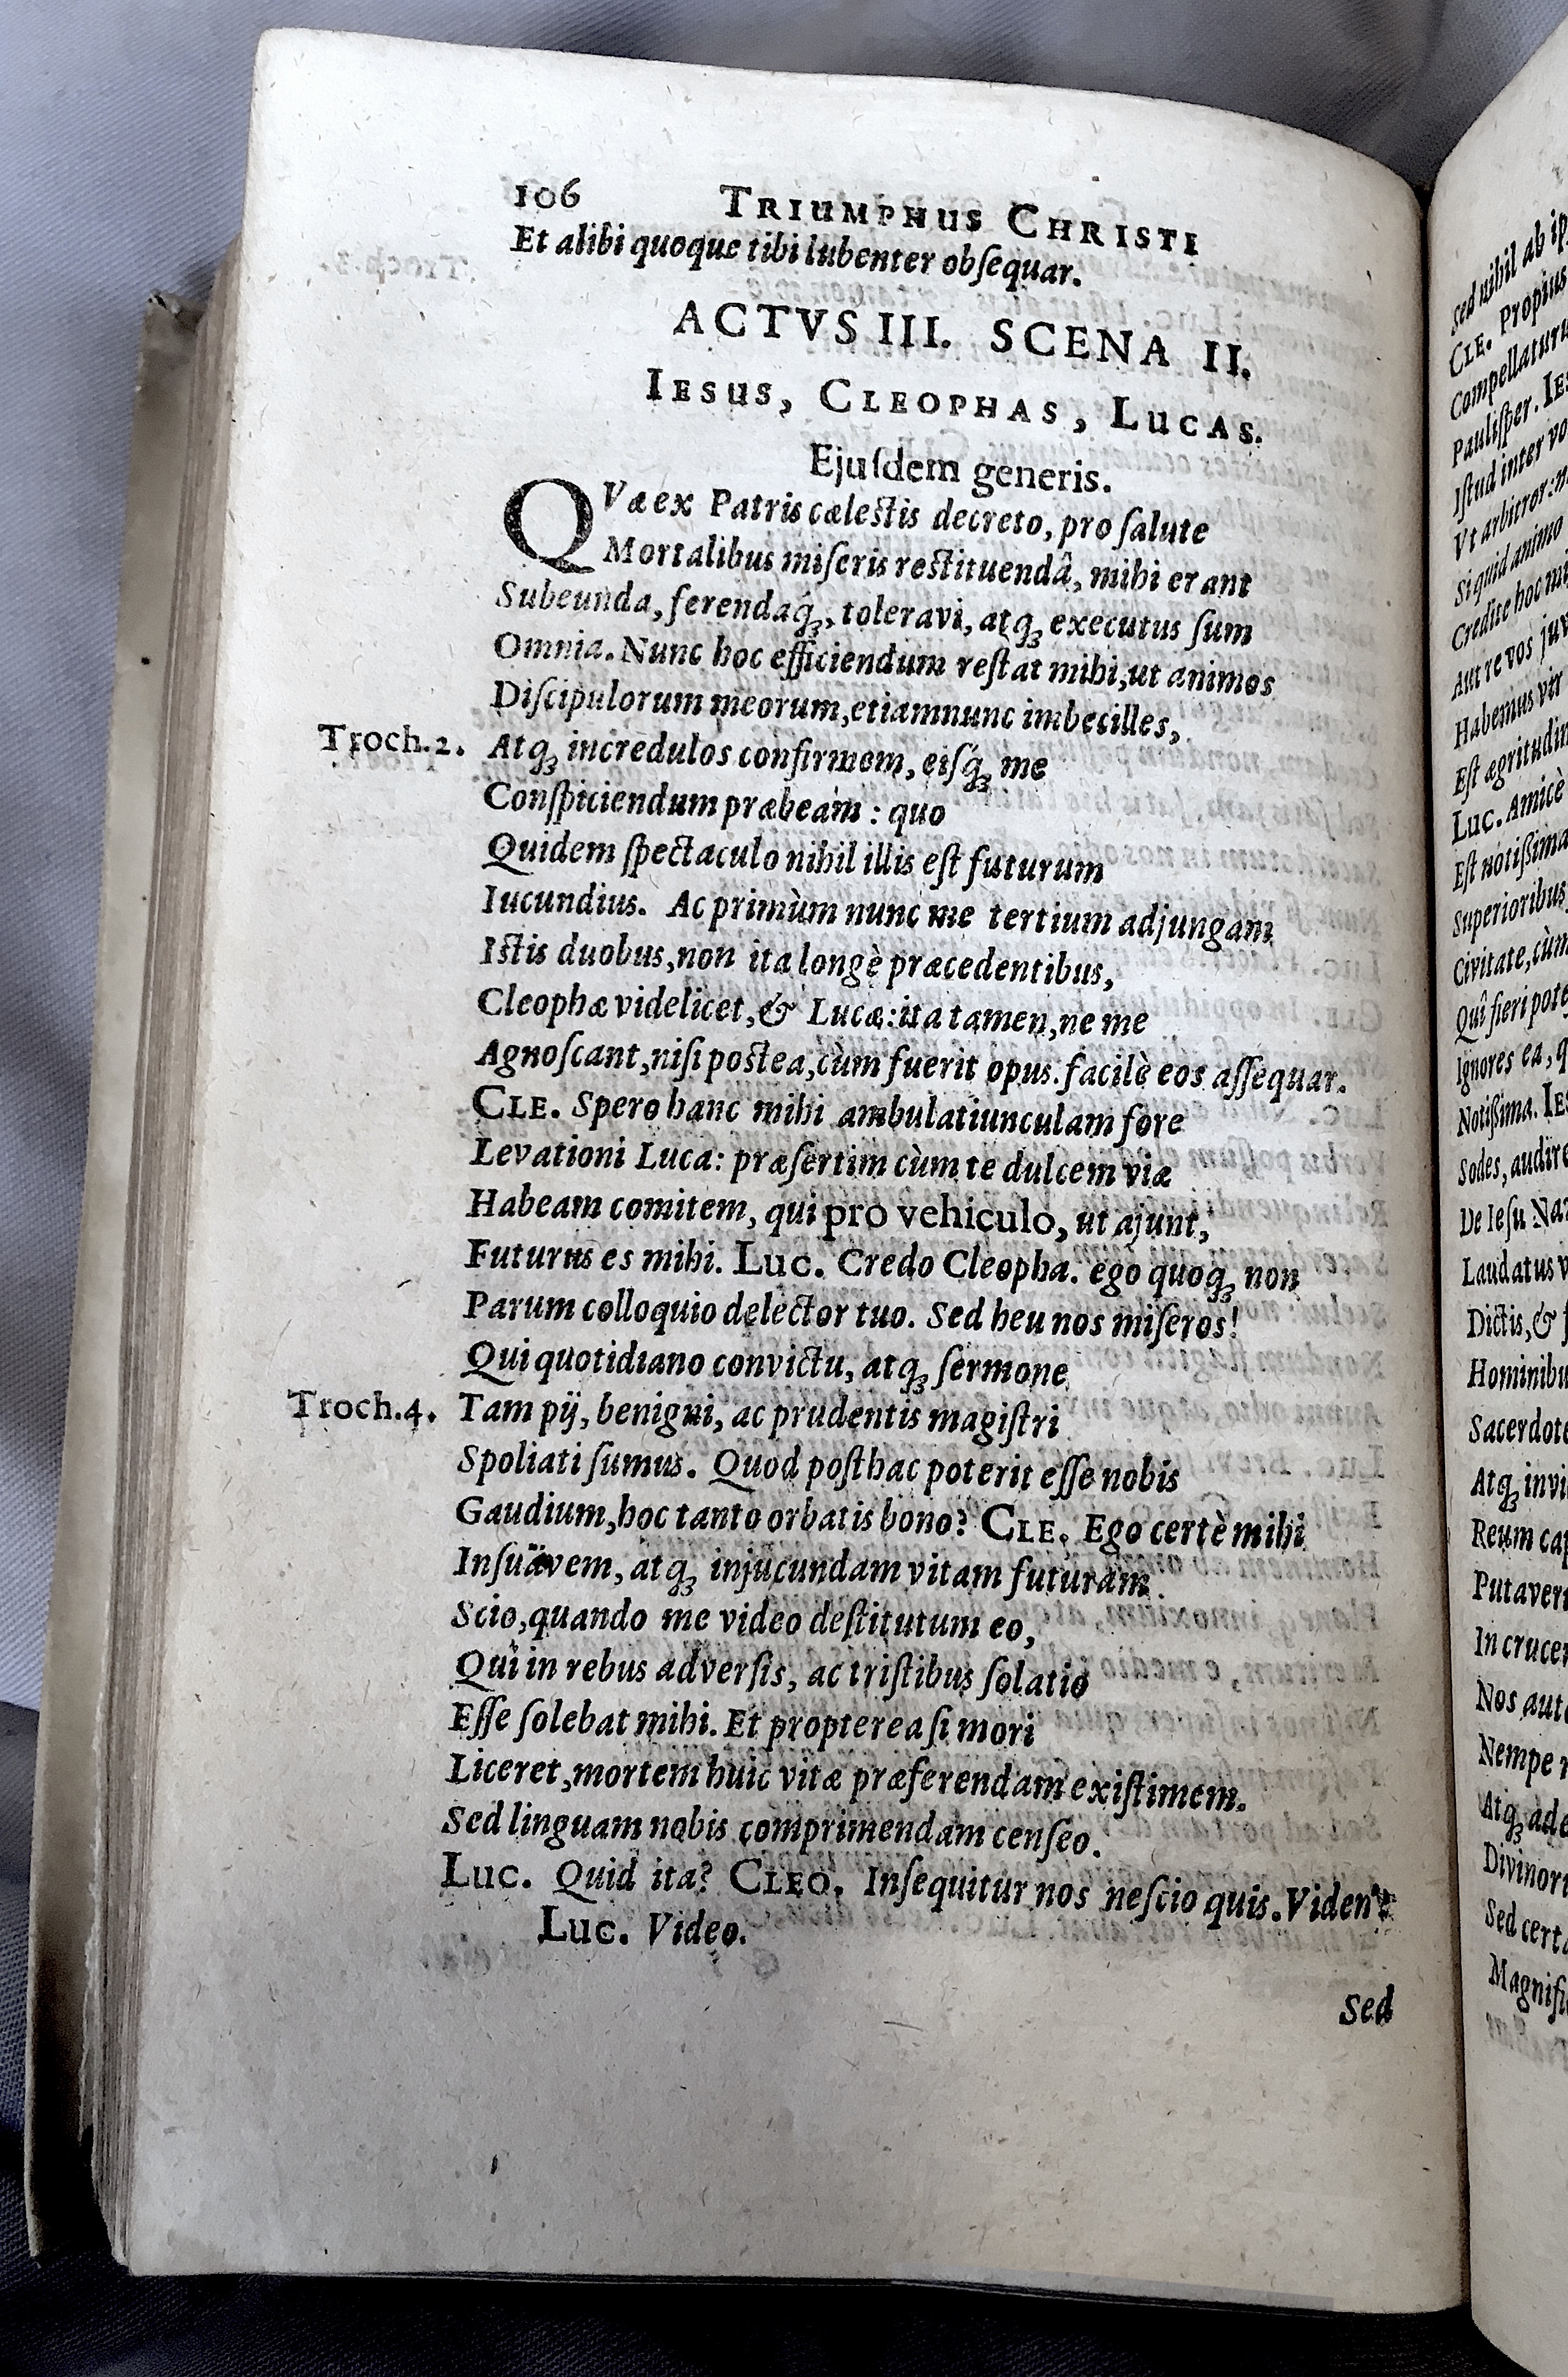 106 TRIUMPHUS CHRISTI
Et alibi quoque tibi lubenter obſequar.
ACTVS III. SCENA II.
IESUS, CLEOPHAS, LUCAS.
Ejuſdem generis.
QVæ ex Patris cælestis decreto, pro ſalute
Mortalibus miſeris restituendâ, mihi erant
Subeunda, ferendaq́ꝫ, toleravi, atqꝫ executus ſum
Omnia. Nunc hoc efficiendum reſtat mihi, ut animos
Diſcipulorum meorum, etiamnunc imbecilles,
Troch.2. Atqꝫ incredulos confirmem, eiſq́ꝫ me
Conſpiciendum præbeam : quo
Quidem ſpectaculo nihil illis eſt futurum
Iucundius. Ac primùm nunc me tertium adjungam
Istis duobus, non ita longè præcedentibus,
Cleophæ videlicet, & Lucæ: ita tamen, ne me
Agnoſcant, niſi postea, cùm fuerit opus. facilè eos aſſequar.
CLE. Spero hanc mihi ambulatiunculam fore
Levationi Luca: præſertim cùm te dulcem viæ
Habeam comitem, qui pro vehiculo, ut ajunt,
Futurus es mihi. Luc. Credo Cleopha. ego quoqꝫ non
Parum colloquio delector tuo. Sed heu nos miſeros!
Qui quotidiano convictu, atqꝫ ſermone
Troch.4. Tam pij, benigni, ac prudentis magiſtri
Spoliati ſumus. Quod poſthac poterit eſſe nobis
Gaudium, hoc tanto orbatis bono? CLE. Ego certè mihi
Inſuävem, atqꝫ injucundam vitam futuram
Scio, quando me video deſtitutum eo,
Qui in rebus adverſis, ac triſtibus ſolatio
Eſſe ſolebat mihi. Et propterea ſi mori
Liceret, mortem huic vitæ præferendam exiſtimem.
Sed linguam nobis comprimendam cenſeo.
Luc. Quid ita? CLEO. Inſequitur nos neſcio quis. Viden'?
Luc. Video.
Sed
Sed nihil ab
CLE. Propius
Pauliſper.
Iſtud inter
Vt arbitror:
Si quid animo
Credite hoc
Aut re vos
Habemus vir
Luc. Amicè
Eſt notißima
Superioribus
Civitate, cùm
Quî fieri
Ignores ea,
Notißima.
Sodes, audire
De Ieſu
Laudatus
Dictis, &
Atqꝫ
Reum
Nos
Nempe
Atqꝫ
Sed